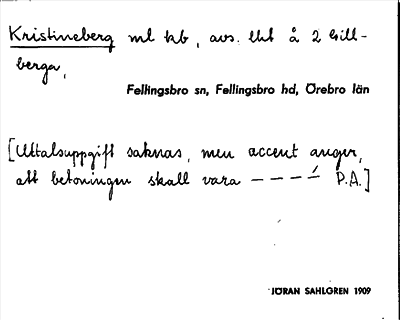 Kristineberg ml hb, avs. lht å 2 Gill-
berga,
Fellingsbro sn, Fellingsbro hd, Örebro län
[Uttalsuppgift saknas, men accent anger,
att betoningen skall vara – – – –́ P.A.]
JÖRAN SAHLGREN 1909